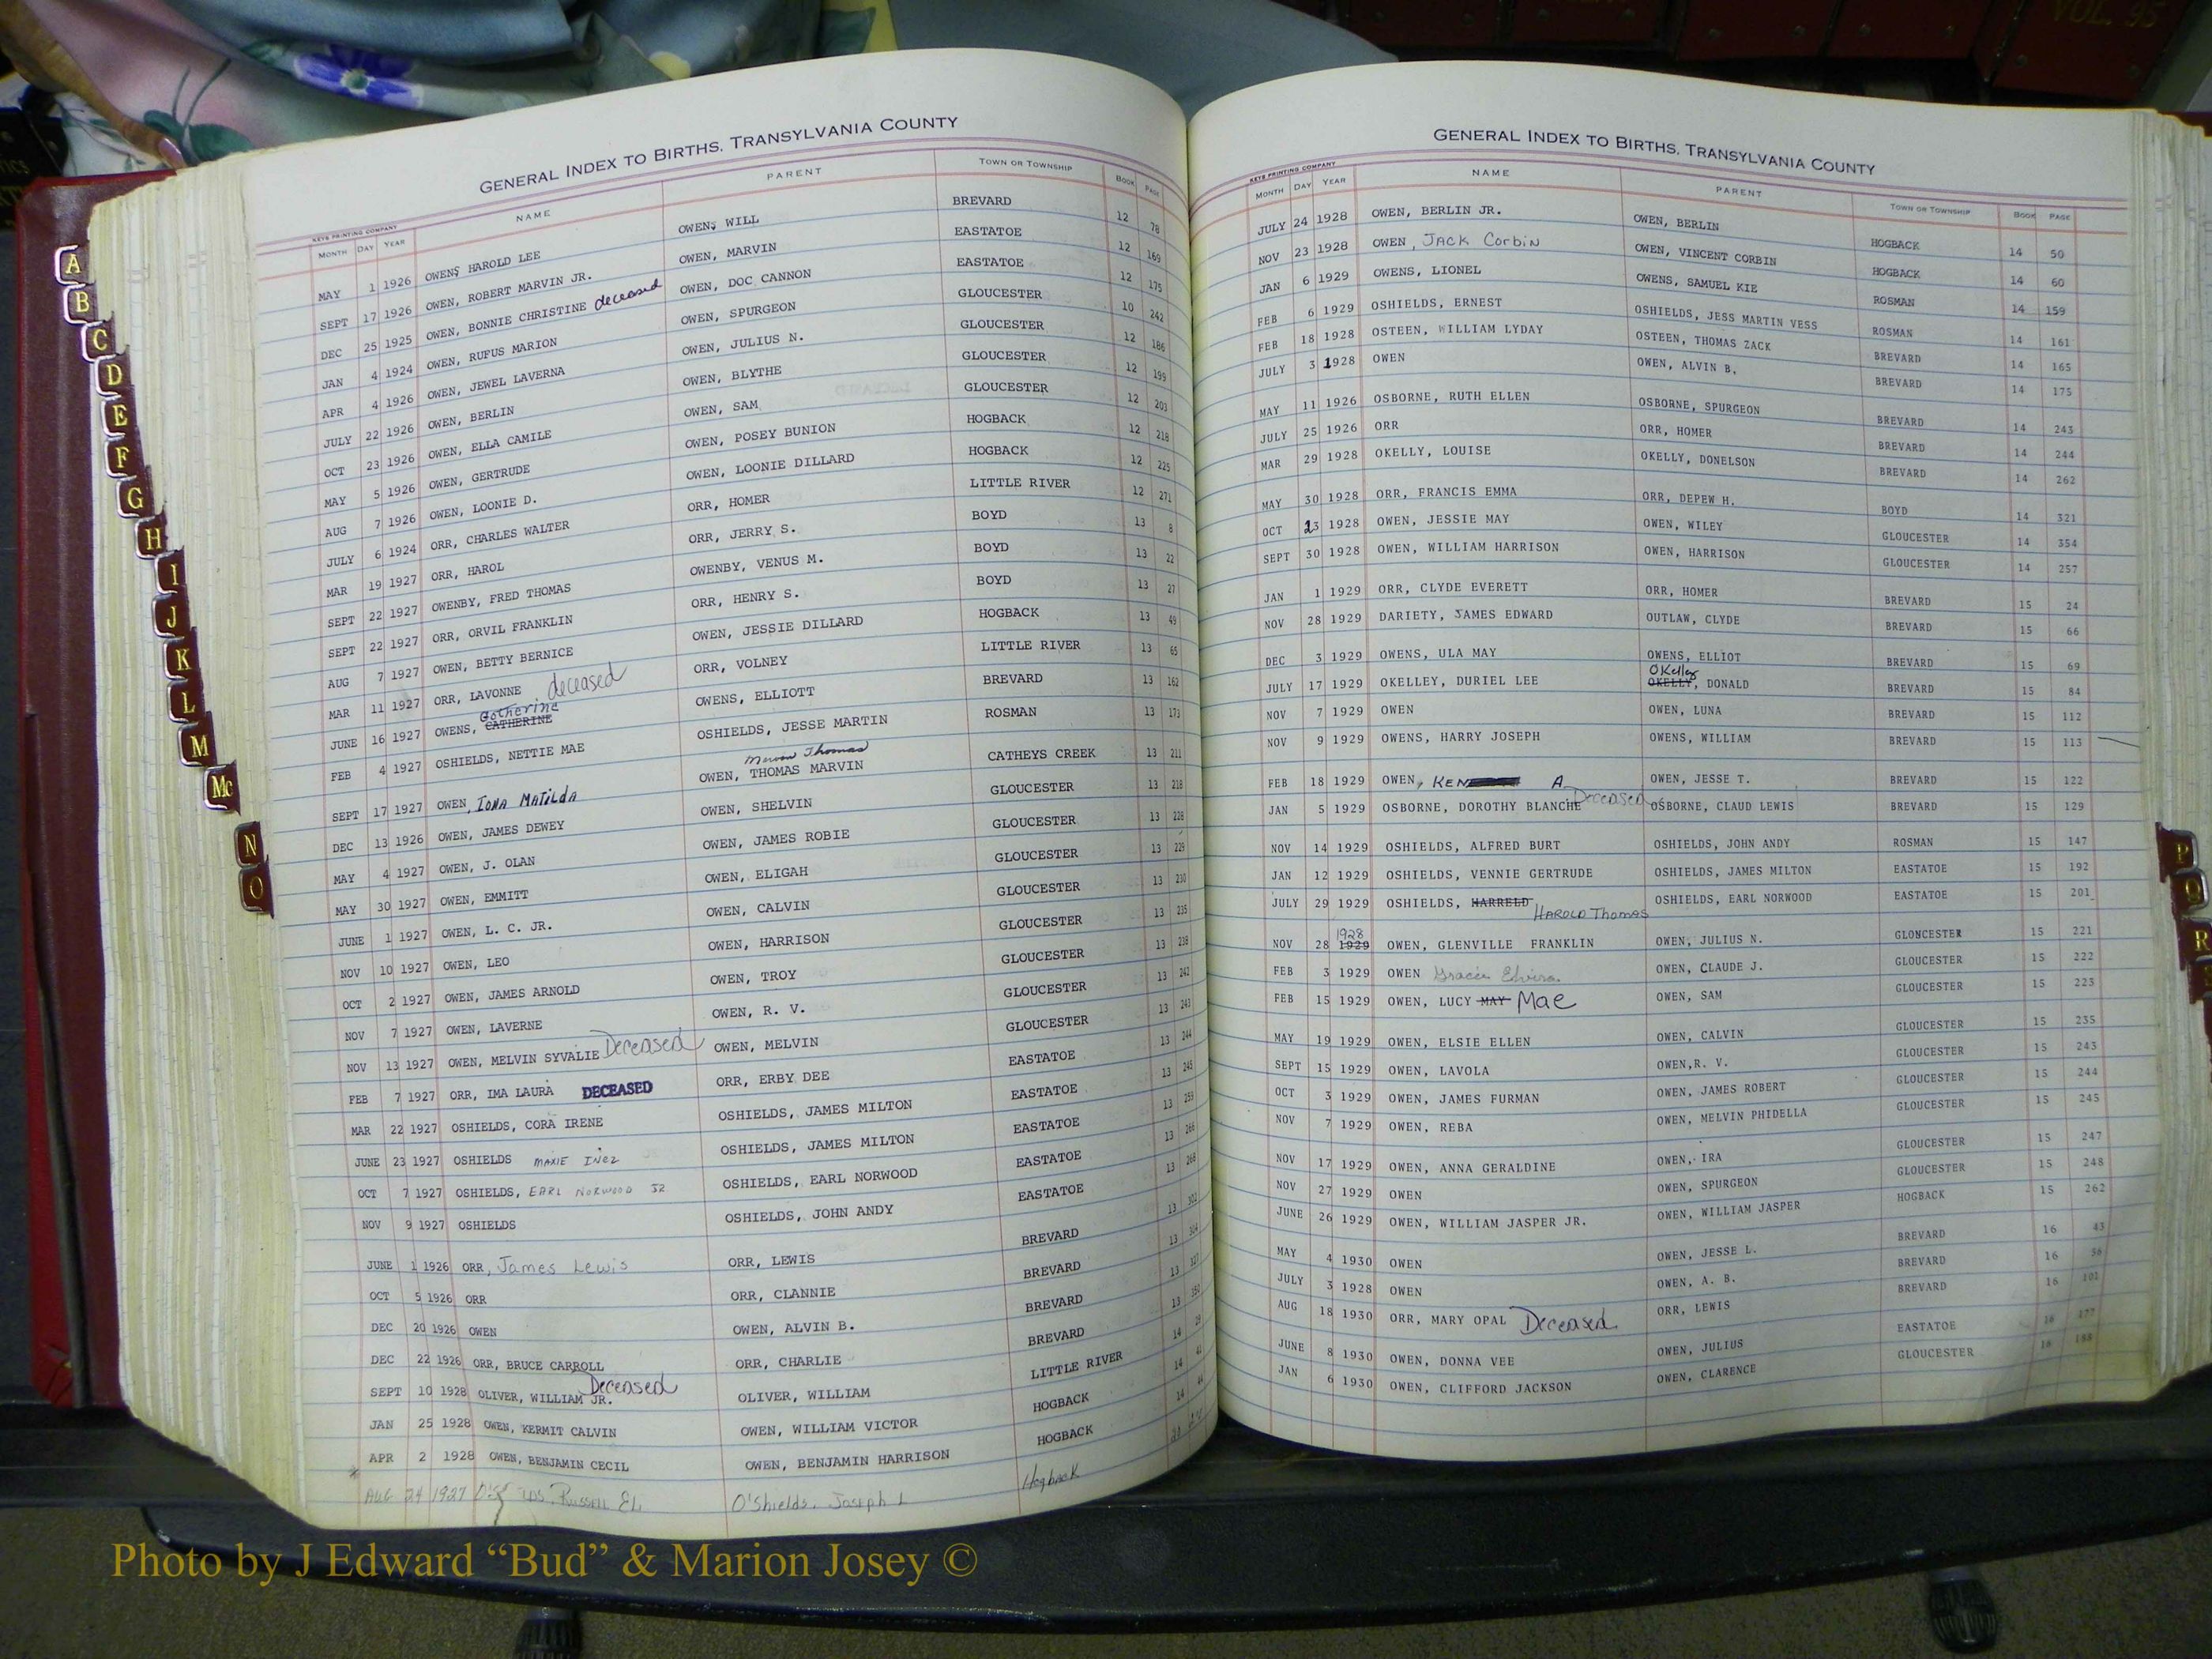 VOL. 95
A
B
C
D
E
F
G
H
I
J
K
L
M
Mc
N
O
GENERAL INDEX TO BIRTHS, TRANSYLVANIA COUNTY
KEYS PRINTING COMPANY
MONTH DAY YEAR NAME PARENT TOWN OR TOWNSHIP BOOK PAGE
MAY 1 1926 OWENS HAROLD LEE OWENS WILL BREVARD 12 78
SEPT 17 1926 OWEN, ROBERT MARVIN JR. OWEN, MARVIN EASTATOE 12 169
DEC 25 1925 OWEN, BONNIE CHRISTINE deceased OWEN, DOC CANNON EASTATOE 12 175
JAN 4 1924 OWEN, RUFUS MARION OWEN, SPURGEON GLOUCESTER 10 242
APR 4 1926 OWEN, JEWEL LAVERNA OWEN, JULIUS N. GLOUCESTER 12 186
JULY 22 1926 OWEN, BERLIN OWEN, BLYTHE GLOUCESTER 12 199
OCT 23 1926 OWEN, ELLA CAMILE OWEN, SAM GLOUCESTER 12 203
MAY 5 1926 OWEN, GERTRUDE OWEN, POSEY BUNION HOGBACK 12 218
AUG 7 1926 OWEN, LOONIE D. OWEN, LOONIE DILLARD HOGBACK 12 225
JULY 6 1924 ORR, CHARLES WALTER ORR, HOMER LITTLE RIVER 12 271
MAR 19 1927 ORR, HAROL ORR, JERRY S. BOYD 13 8
SEPT 22 1927 OWENBY, FRED THOMAS OWENBY, VENUS M. BOYD 13 22
SEPT 22 1927 ORR, ORVIL FRANKLIN ORR, HENRY S. BOYD 13 27
AUG 7 1927 OWEN, BETTY BERNICE OWEN, JESSIE DILLARD HOGBACK 13 49
MAR 11 1927 ORR, LAVONNE deceased ORR, VOLNEY LITTLE RIVER 13 65
JUNE 16 1927 OWENS, CATHERINE Catherine OWENS, ELLIOTT BREVARD 13 162
FEB 4 1927 OSHIELDS, NETTIE MAE OSHIELDS, JESSE MARTIN ROSMAN 13 173
Marvin Thomas
SEPT 17 1927 OWEN, IONA MATILDA OWEN, THOMAS MARVIN CATHEYS CREEK 13 211
DEC 13 1926 OWEN, JAMES DEWEY OWEN, SHELVIN GLOUCESTER 13 218
MAY 4 1927 OWEN, J. OLAN OWEN, JAMES ROBIE GLOUCESTER 13 228
MAY 30 1927 OWEN, EMMITT OWEN, ELIGAH GLOUCESTER 13 229
JUNE 1 1927 OWEN, L. C. JR. OWEN, CALVIN GLOUCESTER 13 230
NOV 10 1927 OWEN, LEO OWEN, HARRISON GLOUCESTER 13 235
OCT 2 1927 OWEN, JAMES ARNOLD OWEN, TROY GLOUCESTER 13 238
NOV 7 1927 OWEN, LAVERNE OWEN, R. V. GLOUCESTER 13 242
NOV 13 1927 OWEN, MELVIN SYVALIE Deceased OWEN, MELVIN GLOUCESTER 13 243
FEB 7 1927 ORR, IMA LAURA DECEASED ORR, ERBY DEE EASTATOE 13 244
MAR 22 1927 OSHIELDS, CORA IRENE OSHIELDS, JAMES MILTON EASTATOE 13 245
JUNE 23 1927 OSHIELDS MAXIE INEZ OSHIELDS, JAMES MILTON EASTATOE 13
OCT 7 1927 OSHIELDS, EARL NORWOOD JR OSHIELDS, EARL NORWOOD EASTATOE 13 266
NOV 9 1927 OSHIELDS OSHIELDS, JOHN ANDY EASTATOE 13 268
JUNE 1 1926 ORR, James Lewis ORR, LEWIS BREVARD 13 302
OCT 5 1926 ORR ORR, CLANNIE BREVARD 13
DEC 20 1926 OWEN OWEN, ALVIN B. BREVARD 13
DEC 22 1926 ORR, BRUCE CARROLL ORR, CHARLIE BREVARD 13
SEPT 10 1928 OLIVER, WILLIAM JR. Deceased OLIVER, WILLIAM LITTLE RIVER 14
JAN 25 1928 OWEN, KERMIT CALVIN OWEN, WILLIAM VICTOR HOGBACK 14
APR 2 1928 OWEN, BENJAMIN CECIL OWEN, BENJAMIN HARRISON HOGBACK 14
AUG 24 1927 Russell O'Shields, Joseph L Hogback
GENERAL INDEX TO BIRTHS, TRANSYLVANIA COUNTY
KEYS PRINTING COMPANY
MONTH DAY YEAR NAME PARENT TOWN OR TOWNSHIP BOOK PAGE
JULY 24 1928 OWEN, BERLIN JR. OWEN, BERLIN HOGBACK 14 50
NOV 23 1928 OWEN, JACK Corbin OWEN, VINCENT CORBIN HOGBACK 14 60
JAN 6 1929 OWENS, LIONEL OWENS, SAMUEL KIE ROSMAN 14 159
FEB 6 1929 OSHIELDS, ERNEST OSHIELDS, JESS MARTIN VESS ROSMAN 14 161
FEB 18 1928 OSTEEN, WILLIAM LYDAY OSTEEN, THOMAS ZACK BREVARD 14 165
JULY 3 1928 OWEN OWEN, ALVIN B. BREVARD 14 175
MAY 11 1926 OSBORNE, RUTH ELLEN OSBORNE, SPURGEON BREVARD 14 243
JULY 25 1926 ORR ORR, HOMER BREVARD 14 244
MAR 29 1928 OKELLY, LOUISE OKELLY, DONELSON BREVARD 14 262
MAY 30 1928 ORR, FRANCIS EMMA ORR, DEPEW H. BOYD 14 321
OCT 23 1928 OWEN, JESSIE MAY OWEN, WILEY GLOUCESTER 14 354
SEPT 30 1928 OWEN, WILLIAM HARRISON OWEN, HARRISON GLOUCESTER 14 257
JAN 1 1929 ORR, CLYDE EVERETT ORR, HOMER BREVARD 15 24
NOV 28 1929 DARIETY, JAMES EDWARD OUTLAW, CLYDE BREVARD 15 66
DEC 3 1929 OWENS, ULA MAY OWENS, ELLIOT BREVARD 15 69
OKelley
JULY 17 1929 OKELLEY, DURIEL LEE OKELLY, DONALD BREVARD 15 84
NOV 7 1929 OWEN OWEN, LUNA BREVARD 15 112
NOV 9 1929 OWENS, HARRY JOSEPH OWENS, WILLIAM BREVARD 15 113
FEB 18 1929 OWEN, KEN A. OWEN, JESSE T. BREVARD 15 122
JAN 5 1929 OSBORNE, DOROTHY BLANCHE Deceased OSBORNE, CLAUD LEWIS BREVARD 15 129
NOV 14 1929 OSHIELDS, ALFRED BURT OSHIELDS, JOHN ANDY ROSMAN 15 147
JAN 12 1929 OSHIELDS, VENNIE GERTRUDE OSHIELDS, JAMES MILTON EASTATOE 15 192
JULY 29 1929 OSHIELDS, HARRELD HAROLD Thomas OSHIELDS, EARL NORWOOD EASTATOE 15 201
1928
NOV 28 1929 OWEN, GLENVILLE FRANKLIN OWEN, JULIUS N. GLONCESTER 15 221
FEB 3 1929 OWEN Gracie Elvira OWEN, CLAUDE J. GLOUCESTER 15 222
FEB 15 1929 OWEN, LUCY MAY Mae OWEN, SAM GLOUCESTER 15 223
MAY 19 1929 OWEN, ELSIE ELLEN OWEN, CALVIN GLOUCESTER 15 235
SEPT 15 1929 OWEN, LAVOLA OWEN, R. V. GLOUCESTER 15 243
OCT 3 1929 OWEN, JAMES FURMAN OWEN, JAMES ROBERT GLOUCESTER 15 244
NOV 7 1929 OWEN, REBA OWEN, MELVIN PHIDELLA GLOUCESTER 15 245
NOV 17 1929 OWEN, ANNA GERALDINE OWEN, IRA GLOUCESTER 15 247
NOV 27 1929 OWEN OWEN, SPURGEON GLOUCESTER 15 248
JUNE 26 1929 OWEN, WILLIAM JASPER JR. OWEN, WILLIAM JASPER HOGBACK 15 262
MAY 4 1930 OWEN OWEN, JESSE L. BREVARD 16 43
JULY 3 1928 OWEN OWEN, A. B. BREVARD 16 56
AUG 18 1930 ORR, MARY OPAL Deceased ORR, LEWIS BREVARD 16 101
JUNE 8 1930 OWEN, DONNA VEE OWEN, JULIUS EASTATOE 16 177
JAN 6 1930 OWEN, CLIFFORD JACKSON OWEN, CLARENCE GLOUCESTER 16 188
P
Q
R
Photo by J Edward “Bud” & Marion Josey ©